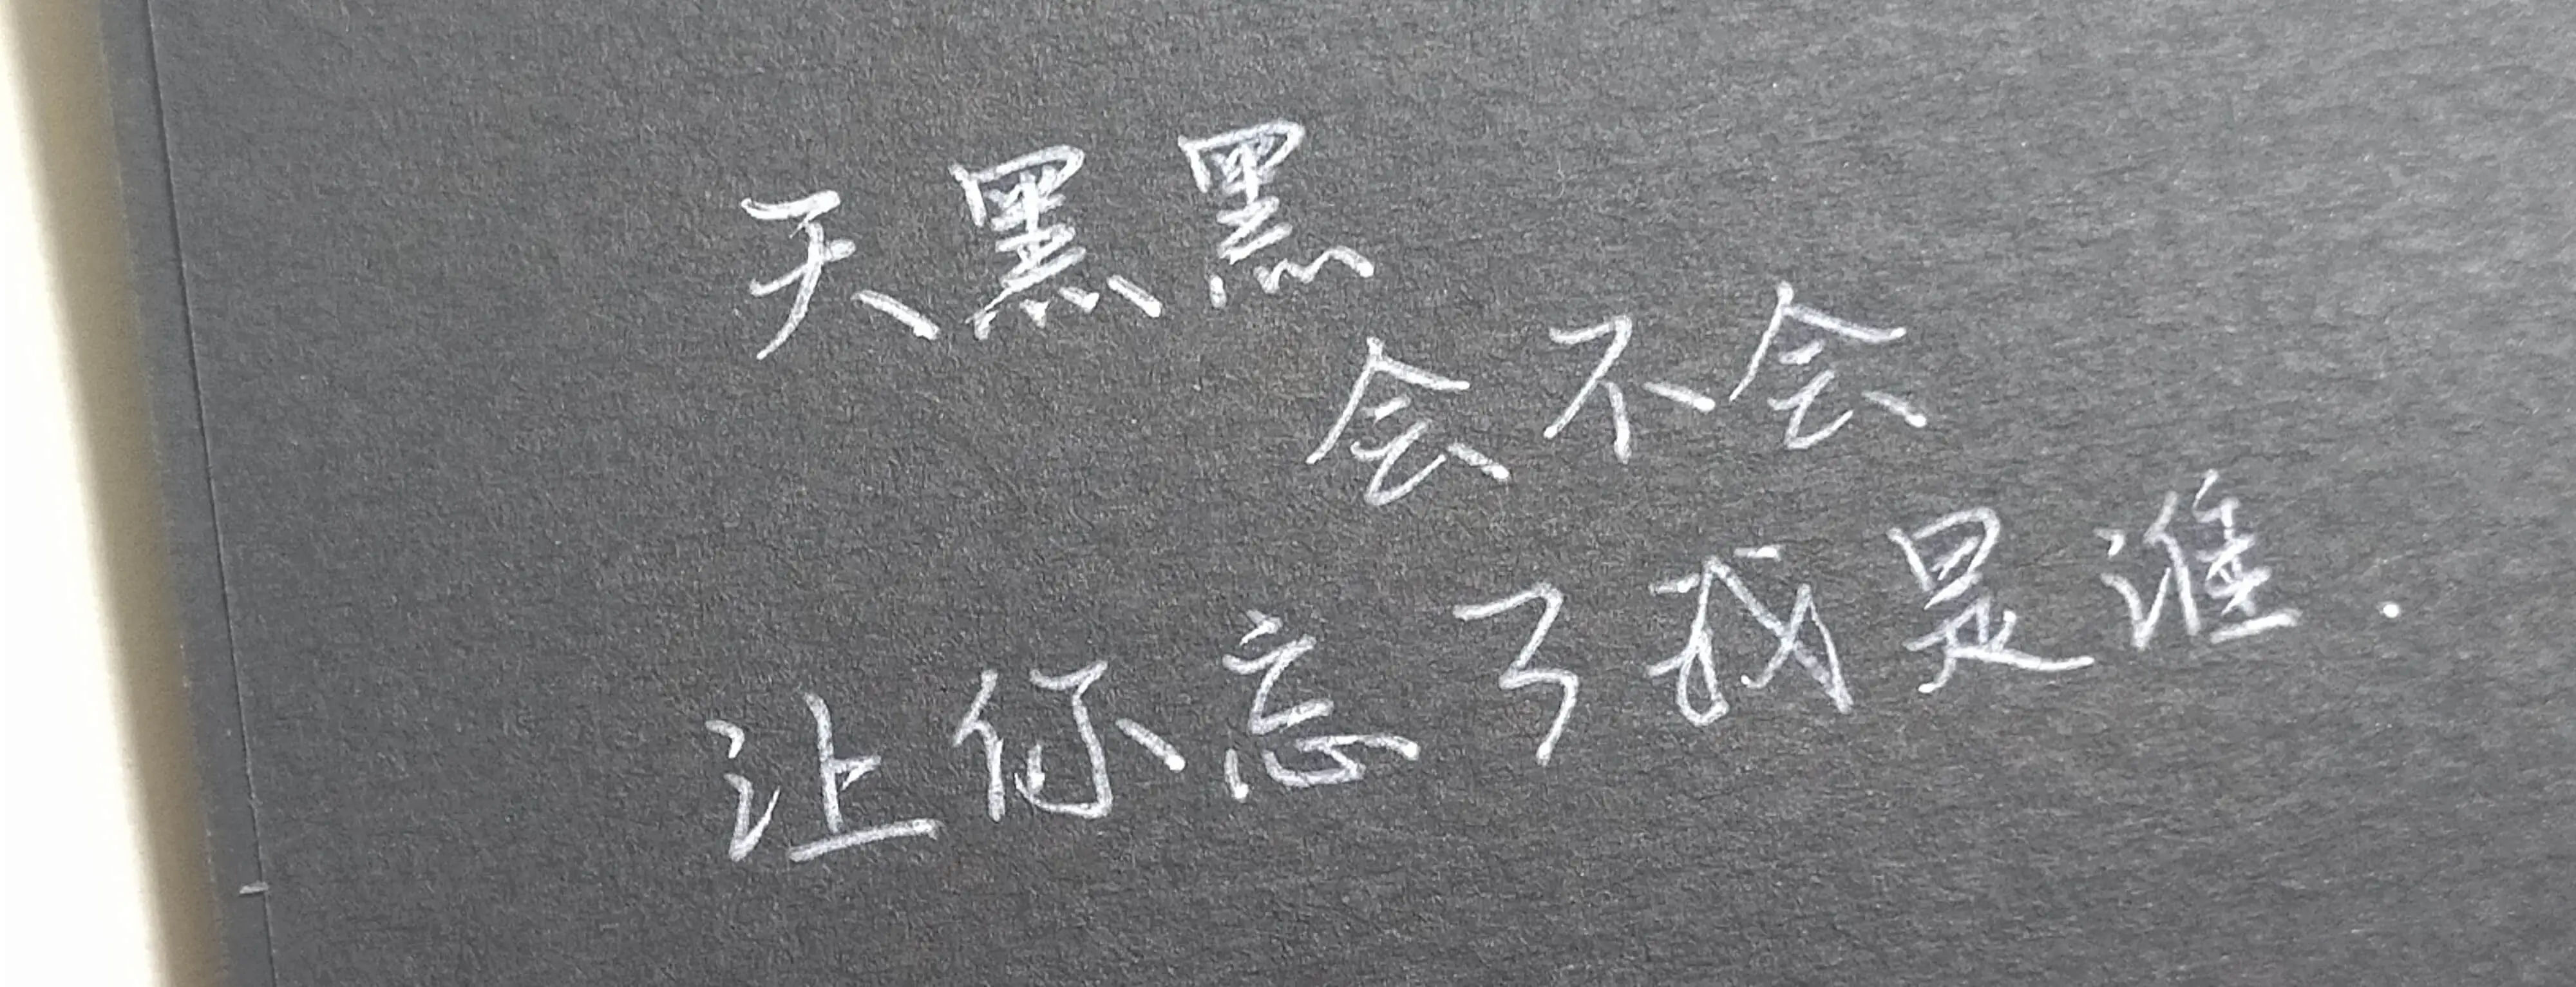 天黑黑
会不会
让你忘了我是谁.